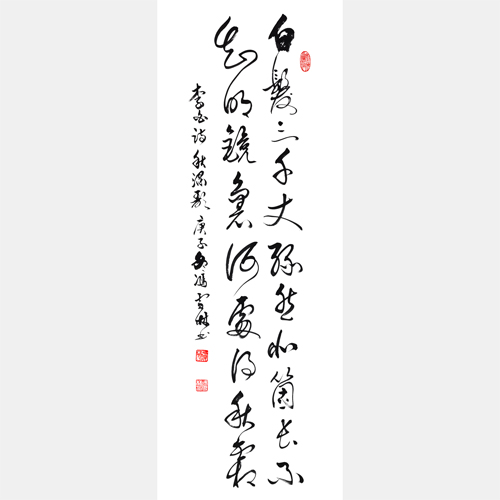 白髮三千丈緣愁似箇長不
知明鏡裏何處得秋霜
李白诗秋浦歌庚子冯雪林书